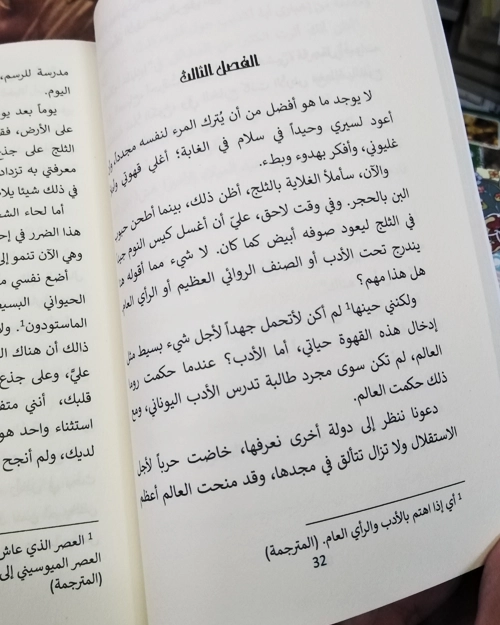 الفصل الثالث
لا يوجد ما هو أفضل من أن يُترك المرء لنفسه مجدداً،
أعود لسيري وحيداً في سلام في الغابة؛ أغلي قهوتي
غليوني، وأفكر بهدوء وبطء.
والآن، سأملأ الغلاية بالثلج، أظن ذلك، بينما أطحن
البن بالحجر. وفي وقت لاحق، عليّ أن أغسل كيس النوم
في الثلج ليعود صوفه أبيض كما كان. لا شيء مما أقوله
يندرج تحت الأدب أو الصنف الروائي العظيم أو الرأي العام
هل هذا مهم؟
ولكنني حينها¹ لم أكن لأتحمل جهداً لأجل شيء بسيط مثل
إدخال هذه القهوة حياتي، أما الأدب؟ عندما حكمت روما
العالم، لم تكن سوى مجرد طالبة تدرس الأدب اليوناني، ومع
ذلك حكمت العالم.
دعونا ننظر إلى دولة أخرى نعرفها، خاضت حرباً لأجل
الاستقلال ولا تزال تتألق في مجدها، وقد منحت العالم أعظم
¹ أي إذا اهتم بالأدب والرأي العام. (المترجمة)
32
مدرسة للرسم،
اليوم.
يوماً بعد
على الأرض،
الثلج على
معرفتي به تزداد
في ذلك شيئا
أما لحاء
هذا الضرر في
وهي الآن تنمو
أضع نفسي
الحيواني
الماستودون¹.
ذالك أن هناك
عليَّ، وعلى جذع
قلبك، أنني
استثناء واحد
لديك، ولم أنجح
¹ العصر الذي عاش
العصر الميوسيني إلى
(المترجمة)